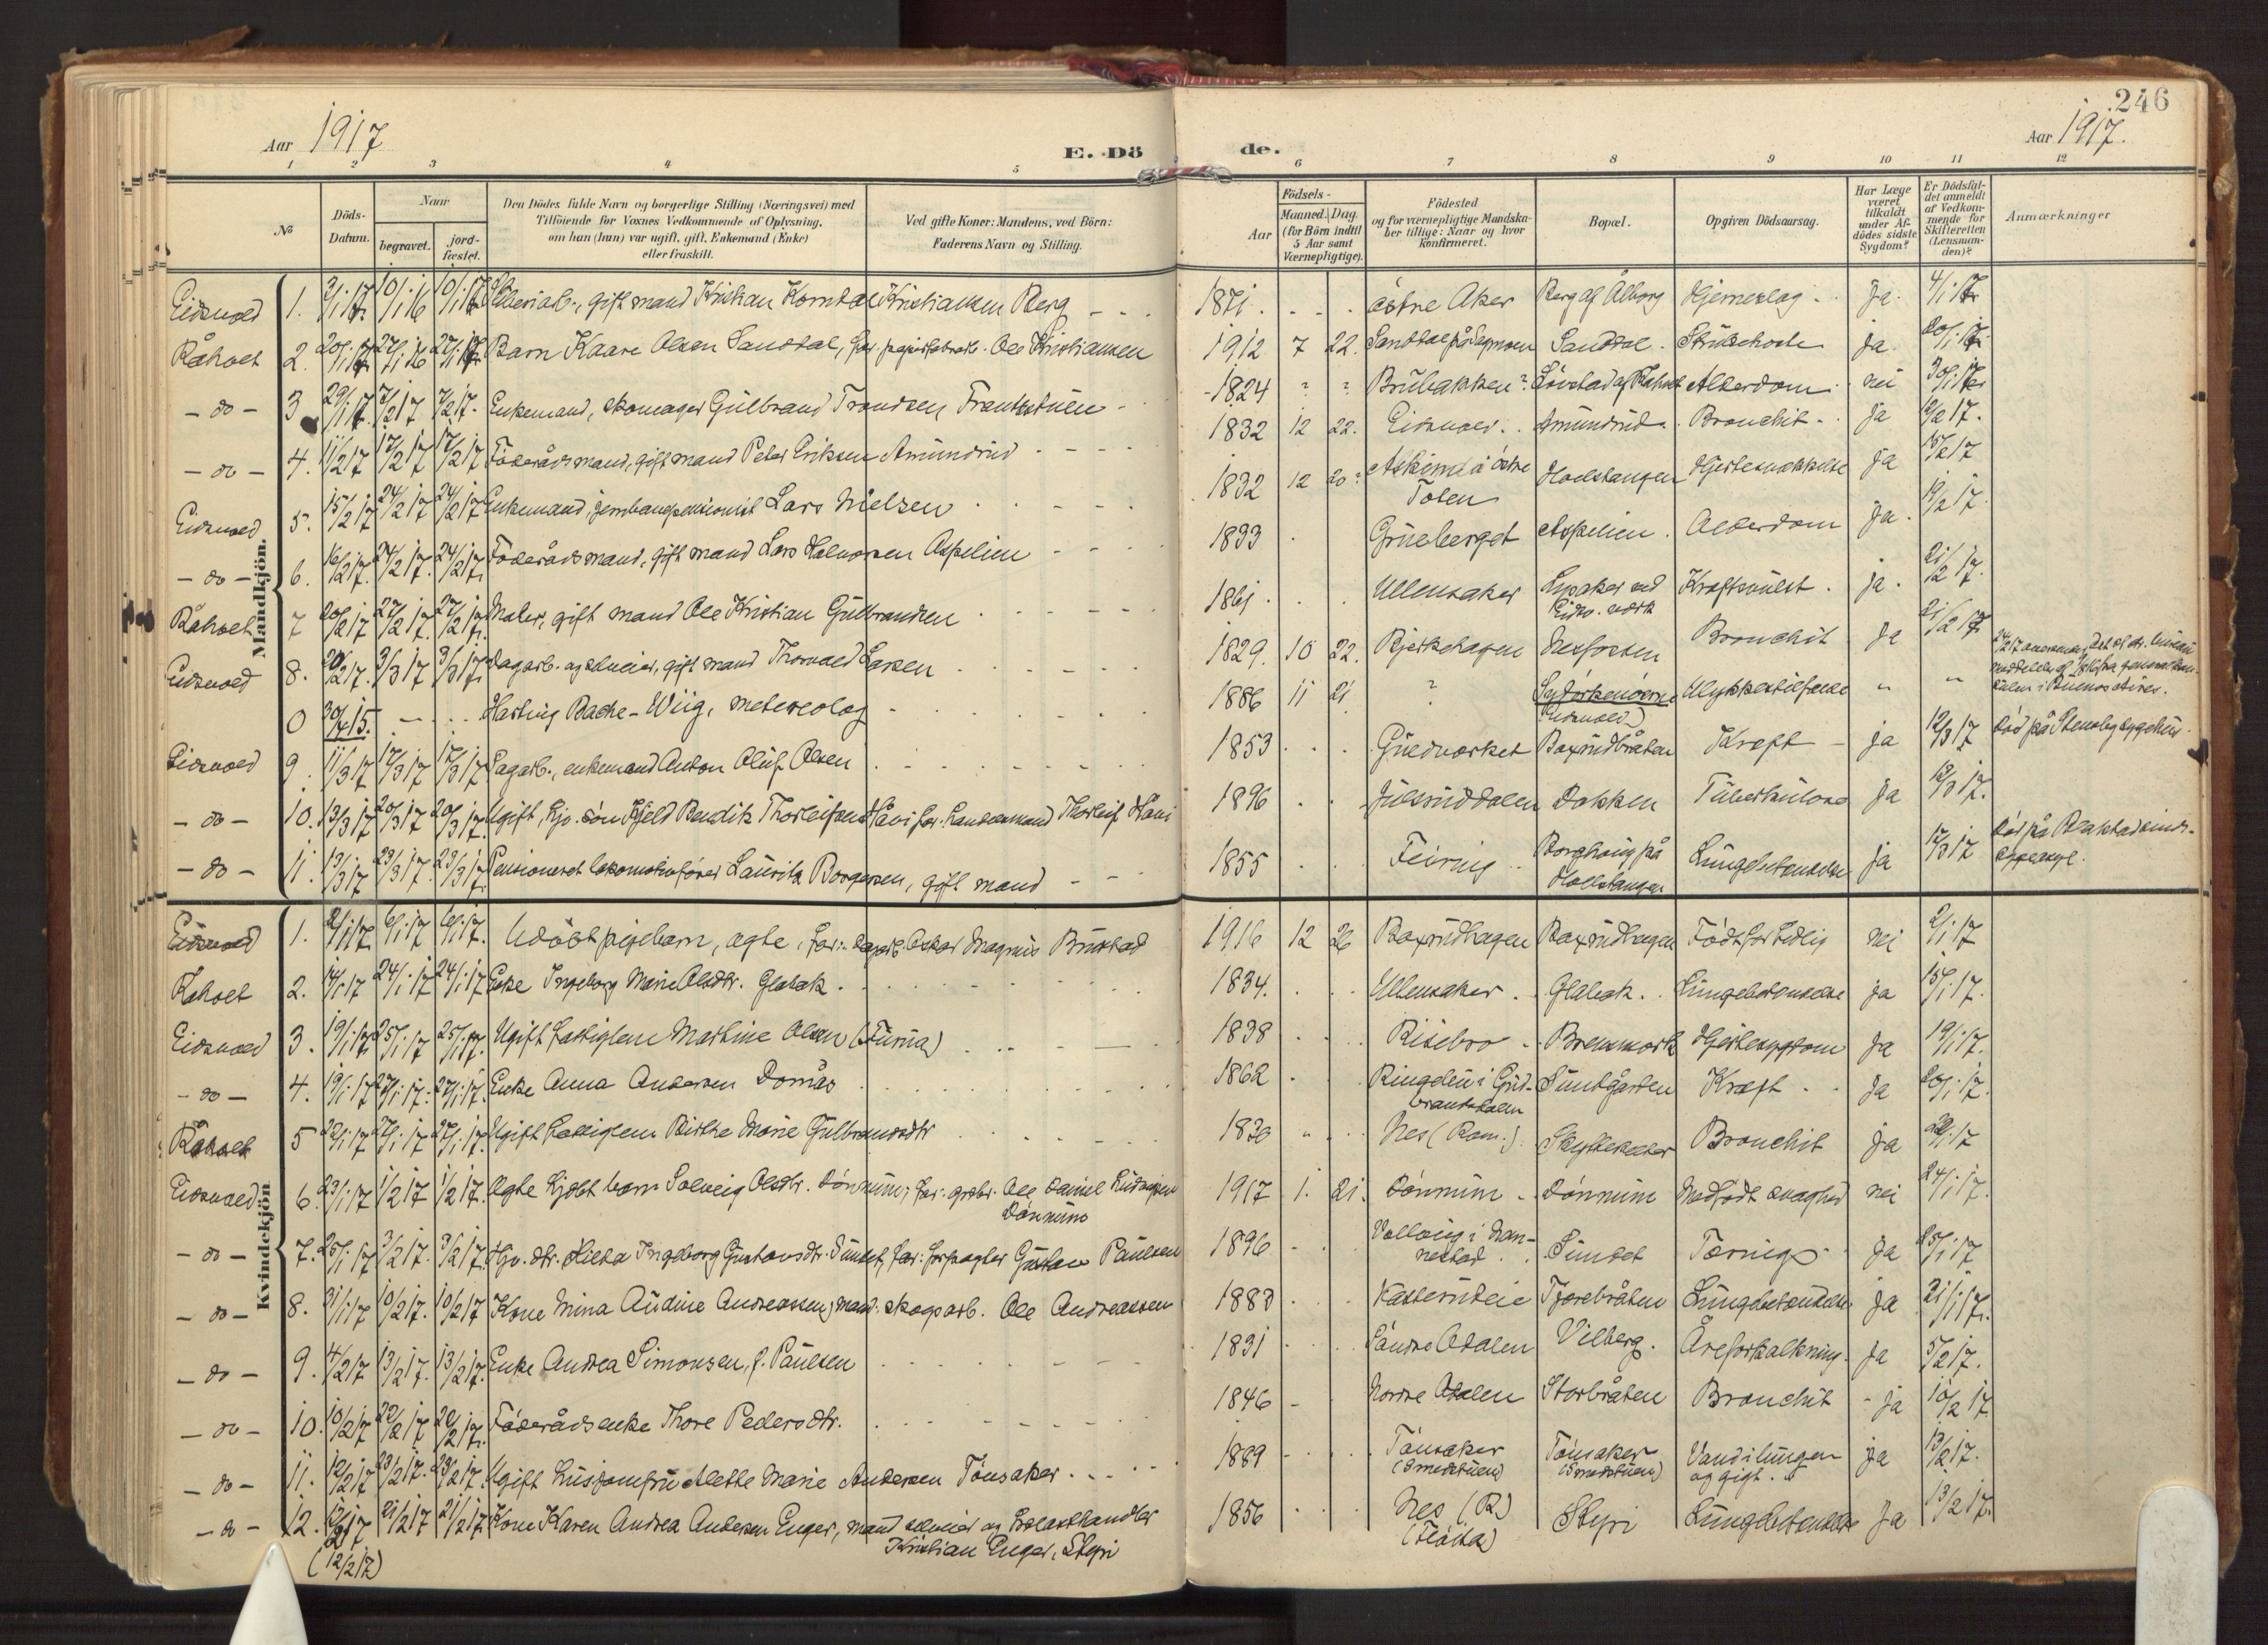 246
Aar 1917
E. Dö
de.
Aar 1917.
1 2 3 4 5 6 7 8 9 10 11 12
No
Döds-Datum.
Naar
begravet.
jordfæstet.
Den Dödes fulde Navn og borgerlige Stilling (Næringsvei) med
Tilföiende for Voxnes Vedkommende af Oplysning,
om han (hun) var ugift, gift, Enkemand (Enke)
eller fraskilt.
Ved gifte Koner: Mandens, ved Börn:
Faderens Navn og Stilling.
Födsels-
Aar
Maaned. Dag.
(for Börn indtil
5 Aar samt
Værnepligtige).
Födested
og for værnepligtige Mandska-
ber tillige: Naar og hvor
Konfirmeret.
Bopæl.
Opgiven Dödsaarsag.
Har Læge
været
tilkaldt
under Af-
dödes sidste
Sygdom?
Er Dödsfal-
det anmeldt
af Vedkom-
mende for
Skifteretten
(Lensman-
den)?
Anmærkninger
Mandkjön.
Eidsvold 1. 3/1 17. 10/1 16 10/1 17 gift mand Kristian Korndal Kristiansen Berg 1871. Östre Aker Berg af Ålborg Hjerneslag ja. 4/1 17
Råholt 2. 20/1 17 27/1 16 27/1 17. Barn Kaare Olsen Sandtal, far: papirfabrik. Ole Kristiansen 1912 7 22. Sandtal på Sagmoen Sandtal Strubehoste ja. 20/1 17.
- do - 3 29/1 17. 7/2 17 7/2 17. Enkemand, skomager Gulbrand Trondsen Frantsstuen 1824 ? ? Brubakken? Lövstad af Råholt Alderdom nei 30/1 17
- do - 4. 11/2 17 17/2 17 17/2 17 Föderådsmand, gift mand Peter Eriksen Amundrud 1832 12 22. Eidsvold. Amundrud. Bronchit ja 12/2 17.
Eidsvold 5. 15/2 17 24/2 17 24/2 17 Enkemand, jernbanepensionist Lars Nielsen 1832 12 20? Askim i östre Toten Holstangen Hjertesvækkelse ja 15/2 17
- do - 6. 16/2 17. 24/2 17. 24/2 17. Föderådsmand, gift mand Lars Halvorsen Aspelien 1833 Grueberget Aspelien. Alderdom ja. 19/2 17.
Råholt 7 20/2 17 27/2 17. 27/2 17. Maler, gift mand Ole Kristian Gulbrandsen 1861. Ullensaker ved Eidsv. værk Kraftsvulst. ja. 21/2 17.
Eidsvold 8. 20/2 17. 3/3 17 3/3 17. Dagarb. og selveier, gift mand Thorvald Larsen 1829. 10 22. Bjerkehagen Nesfossen Bronchit ja 21/2 17
0 30/ 15. Hartvig Bache-Wiig, metereolog 1886 11 21 ? Sydorkenöerne (Eidsvold) Ulykkestilfælde " "
i Buenos Aires.
Eidsvold 9. 11/3 17 17/3 17 17/3 17 Dagarb., enkemand Anton Oluf Olsen 1853 Guldverket Baxrudbråten Kræft ja 12/3 17 död på Stensby sygehus.
- do - 10. 13/3 17 20/3 17 20/3 17. Ugift, hjv. sön Kjeld Bendik Thorleifsen Håvi far: handelsmand Thorleif Håvi 1896 Julsruddalen Dokken Tuberkulose ja 13/3 17.
- do - 11. 13/3 17 23/3 17. 23/3 17. Pensioneret lokomotivförer Lauritz Borgersen, gift mand 1855 Feiring Borghaug på Holstangen Lungebetændelse ja 17/3 17 död på
Kvindekjön
Eidsvold 1. 2/1 17. 6/1 17 6/1 17. Udöbt pigebarn, ægte, far: dagarb. Oskar Magnus Bustad 1916 12 26 Baxrudhagen Baxrudhagen Födt for tidlig nei 2/1 17
Råholt 2. 14/1 17 24/1 17 24/1 17 Enke Ingeborg Marie Olsdtr. Glabak. 1834. Ullensaker. Glabak. Lungebetændelse ja 15/1 17.
Eidsvold 3. 19/1 17 25/1 17 25/1 17. Ugift fattiglem Martine Olsen (Furua) 1838 Risebro Brensmork Hjertesygdom ja 19/1 17.
- do - 4. 19/1 17 27/1 17. 27/1 17. Enke Anna Andersen Domås 1862 Ringebu i Gudbrandsdalen Sundgården Kræft ja 20/1 17.
Råholt 5 22/1 17 27/1 17 27/1 17. Ugift fattiglem Birthe Marie Gulbrandsdtr 1830 Nes (Rom.) Bronchit ja 22/1 17
Eidsvold 6. 23/1 17 1/2 17 1/2 17. Ægte hjdöbt barn Solveig Olsdtr. Dönnum, far: grdbr. Ole Daniel Ludvigsen Dönnum 1917 1. 21. Dönnum Dönnum Medfödt svaghed nei 24/1 17.
- do - 7. 25/1 17 3/2 17. 3/2 17. Hjv. dtr. Hilda Ingeborg Gustavsdtr. Sundet, far: forpagter Gustav Paulsen 1896 Vollaug i Nannestad Sundet Tæring ja 25/1 17
- do - 8. 31/1 17 10/2 17. 10/2 17 Kone Mina Audine Andreassen, mand: skogsarb. Ole Andreassen 1883 Tjærebråten Lungebetændelse ja 31/1 17.
- do - 9. 4/2 17 13/2 17. 13/2 17. Enke Andrea Simonsen, f. Paulsen 1831 Söndre Odalen Vilberg. Åreforkalkning. ja 5/2 17.
- do - 10. 10/2 17 22/2 17 22/2 17. Föderådsenke Thore Pedersdtr. 1846 Nordre Odalen Storbråten Bronchit ja 10/2 17
- do - 11. 12/2 17 23/2 17. 23/2 17. Ugift husjomfru Alette Marie Andersen Tönsaker 1889 Tönsaker (Smedstuen) Tönsaker (Smedstuen) Vand i lungen og gigt. ja 13/2 17.
- do - 12. 21/2 17 21/2 17. Kone Karen Andrea Andersen Enger, mand selveier og 1856 Nes (R) Styri Lungebetændelse ja 13/2 17.
Kristian Enger, Styri
(12/2 17)